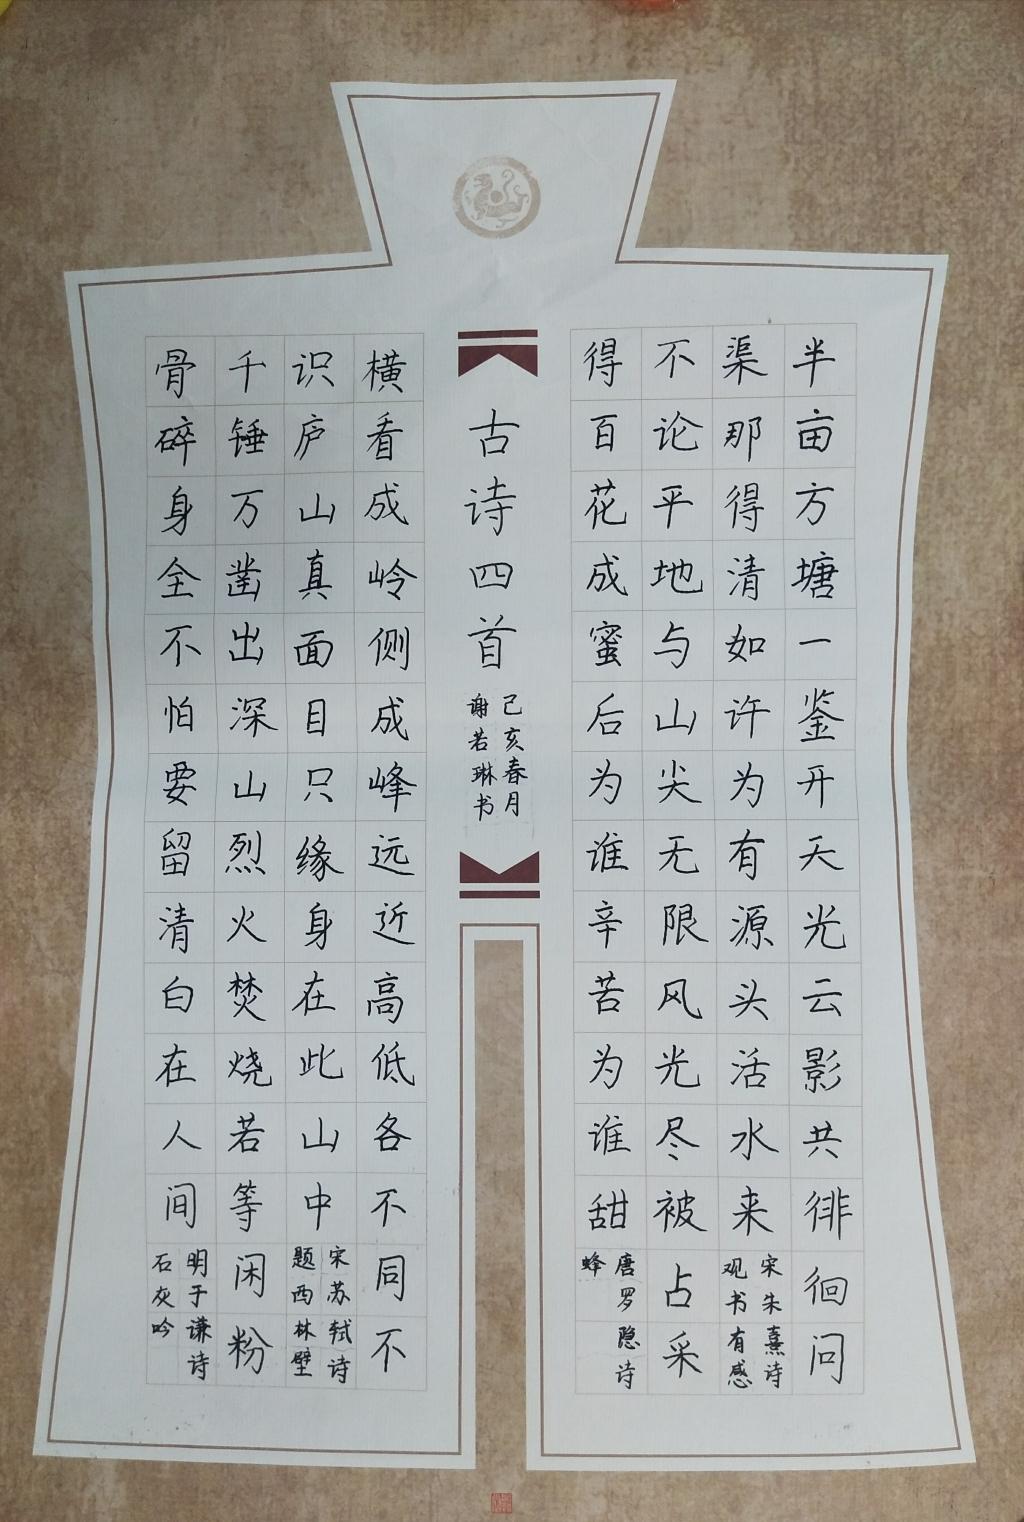 半亩方塘一鉴开天光云影共徘徊问
渠那得清如许为有源头活水来
宋朱熹诗
观书有感
不论平地与山尖无限风光尽被占采
得百花成蜜后为谁辛苦为谁甜
唐罗隐诗
蜂
古诗四首
己亥春月
谢若琳书
横看成岭侧成峰远近高低各不同不
识庐山真面目只缘身在此山中
宋苏轼诗
题西林壁
千锤万凿出深山烈火焚烧若等闲粉
骨碎身全不怕要留清白在人间
明于谦诗
石灰吟